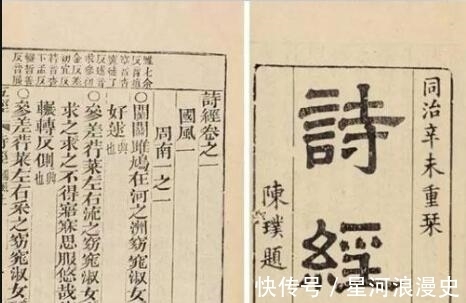 同治辛未重栞
詩經
陳璞題
詩經卷之一
國風一
周南一之一
○關關雎鳩在河之洲窈窕淑女
好逑興也
○參差荇菜左右流之窈窕淑女
求之求之不得寤寐思服悠哉
輾轉反側興也
○參差荇菜左右采之窈窕淑女
快传号 / 星河浪漫史